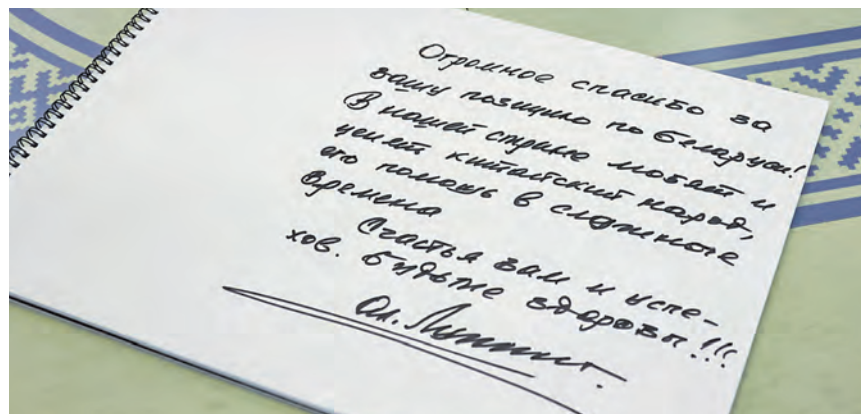 Огромное спасибо за
вашу позицию по Беларуси!
В нашей стране любят и
ценят китайский народ,
его помощь в сложные
времена
Счастья вам и успе-
хов. Будьте здоровы!!!
Ал.